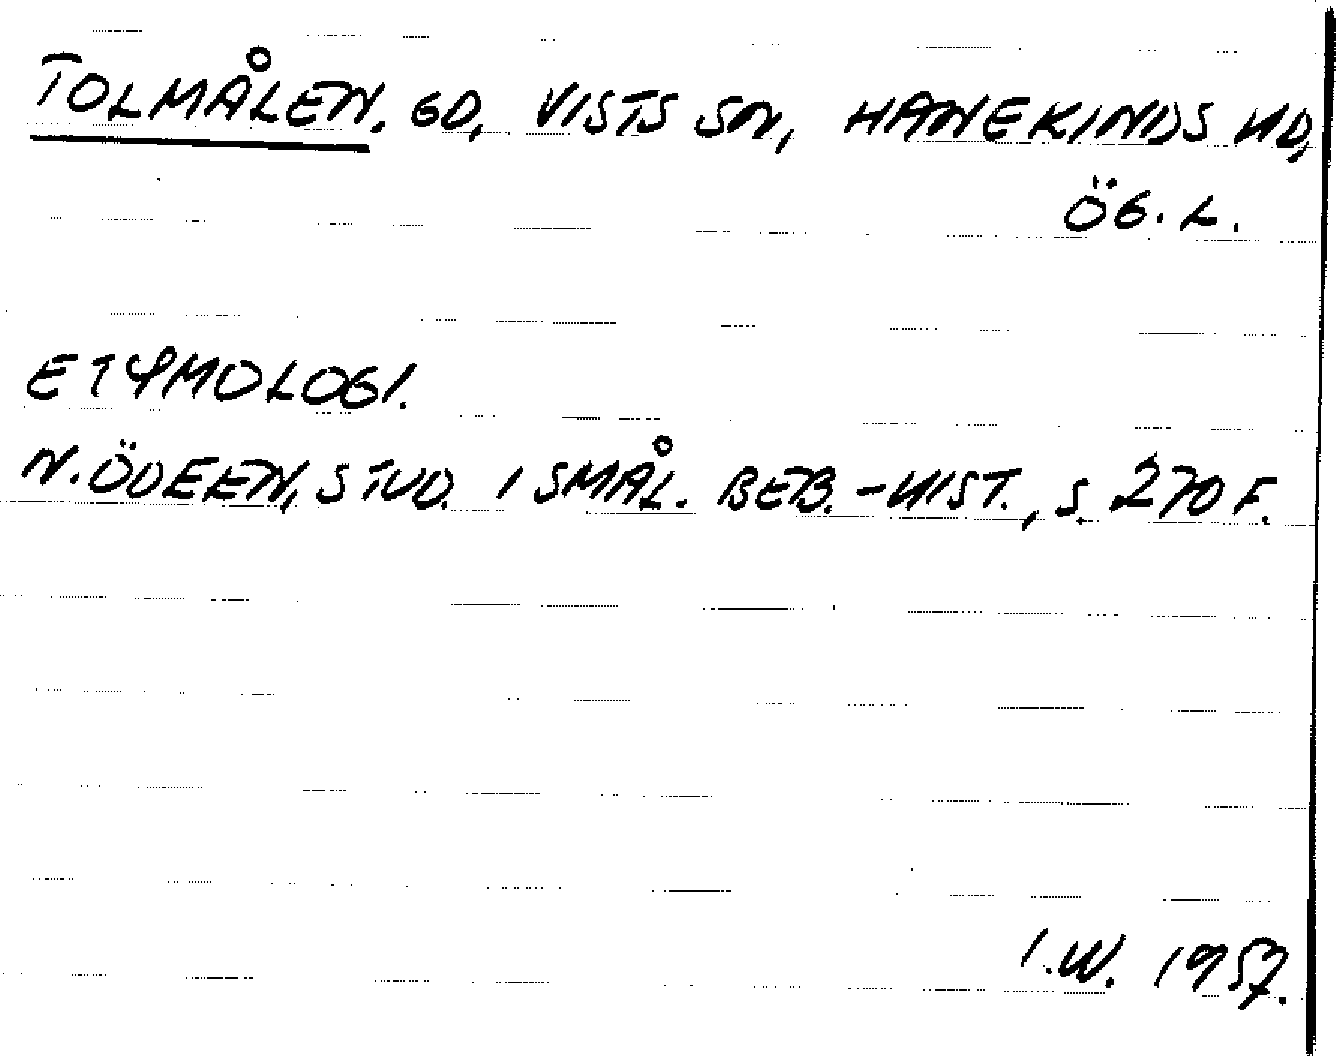 TOLMÅLEN, GD, VISTS SN, HANEKINDS HD,
ÖG. L.
ETYMOLOGI.
N. ÖDEEN, STUD. I SMÅL. BEB.-HIST., S. 270 F.
I.W. 1957.